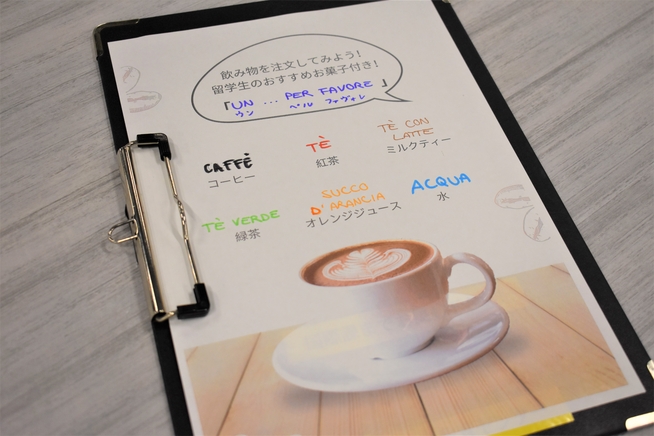 飲み物を注文してみよう!
留学生のおすすめお菓子付き!
「UN ... PER FAVORE」
ウン ペル ファヴォレ
CAFFÈ
コーヒー
TÈ
紅茶
TÈ CON
LATTE
ミルクティー
TÈ VERDE
緑茶
SUCCO
D'ARANCIA
オレンジジュース
ACQUA
水